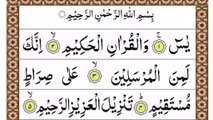 بِسْمِ اللّٰهِ الرَّحْمٰنِ الرَّحِيْمِ
يٰسٓ ۚ﴿۱﴾ وَالْقُرْاٰنِ الْحَكِيْمِ ۙ﴿۲﴾ اِنَّكَ
لَمِنَ الْمُرْسَلِيْنَ ۙ﴿۳﴾ عَلٰى صِرَاطٍ
مُّسْتَقِيْمٍ ؕ﴿۴﴾ تَنْزِيْلَ الْعَزِيْزِ الرَّحِيْمِ ۙ﴿۵﴾